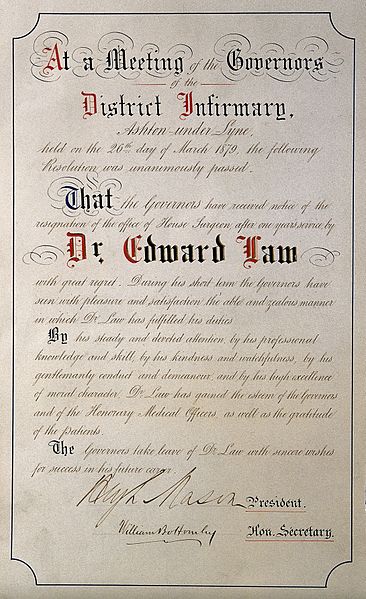 At a Meeting of the Governors
of the
District Infirmary,
Ashton-under-Lyne,
held on the 26th day of March 1879, the following
Resolution was unanimously passed.
That the Governors have received notice of the
resignation of the office of House Surgeon after one years service by
Dr. Edward Law
with great regret. During his short term the Governors have
seen with pleasure and satisfaction the able and zealous manner
in which Dr. Law has fulfilled his duties.
By his steady and devoted attention, by his professional
knowledge and skill, by his kindness and watchfulness, by his
gentlemanly conduct and demeanour, and by his high excellence
of moral character, Dr. Law has gained the esteem of the Governors
and of the Honorary Medical Officers, as well as the gratitude
of the patients.
The Governors take leave of Dr. Law with sincere wishes
for success in his future career.
Hugh Mason President.
William Bottomley Hon. Secretary.